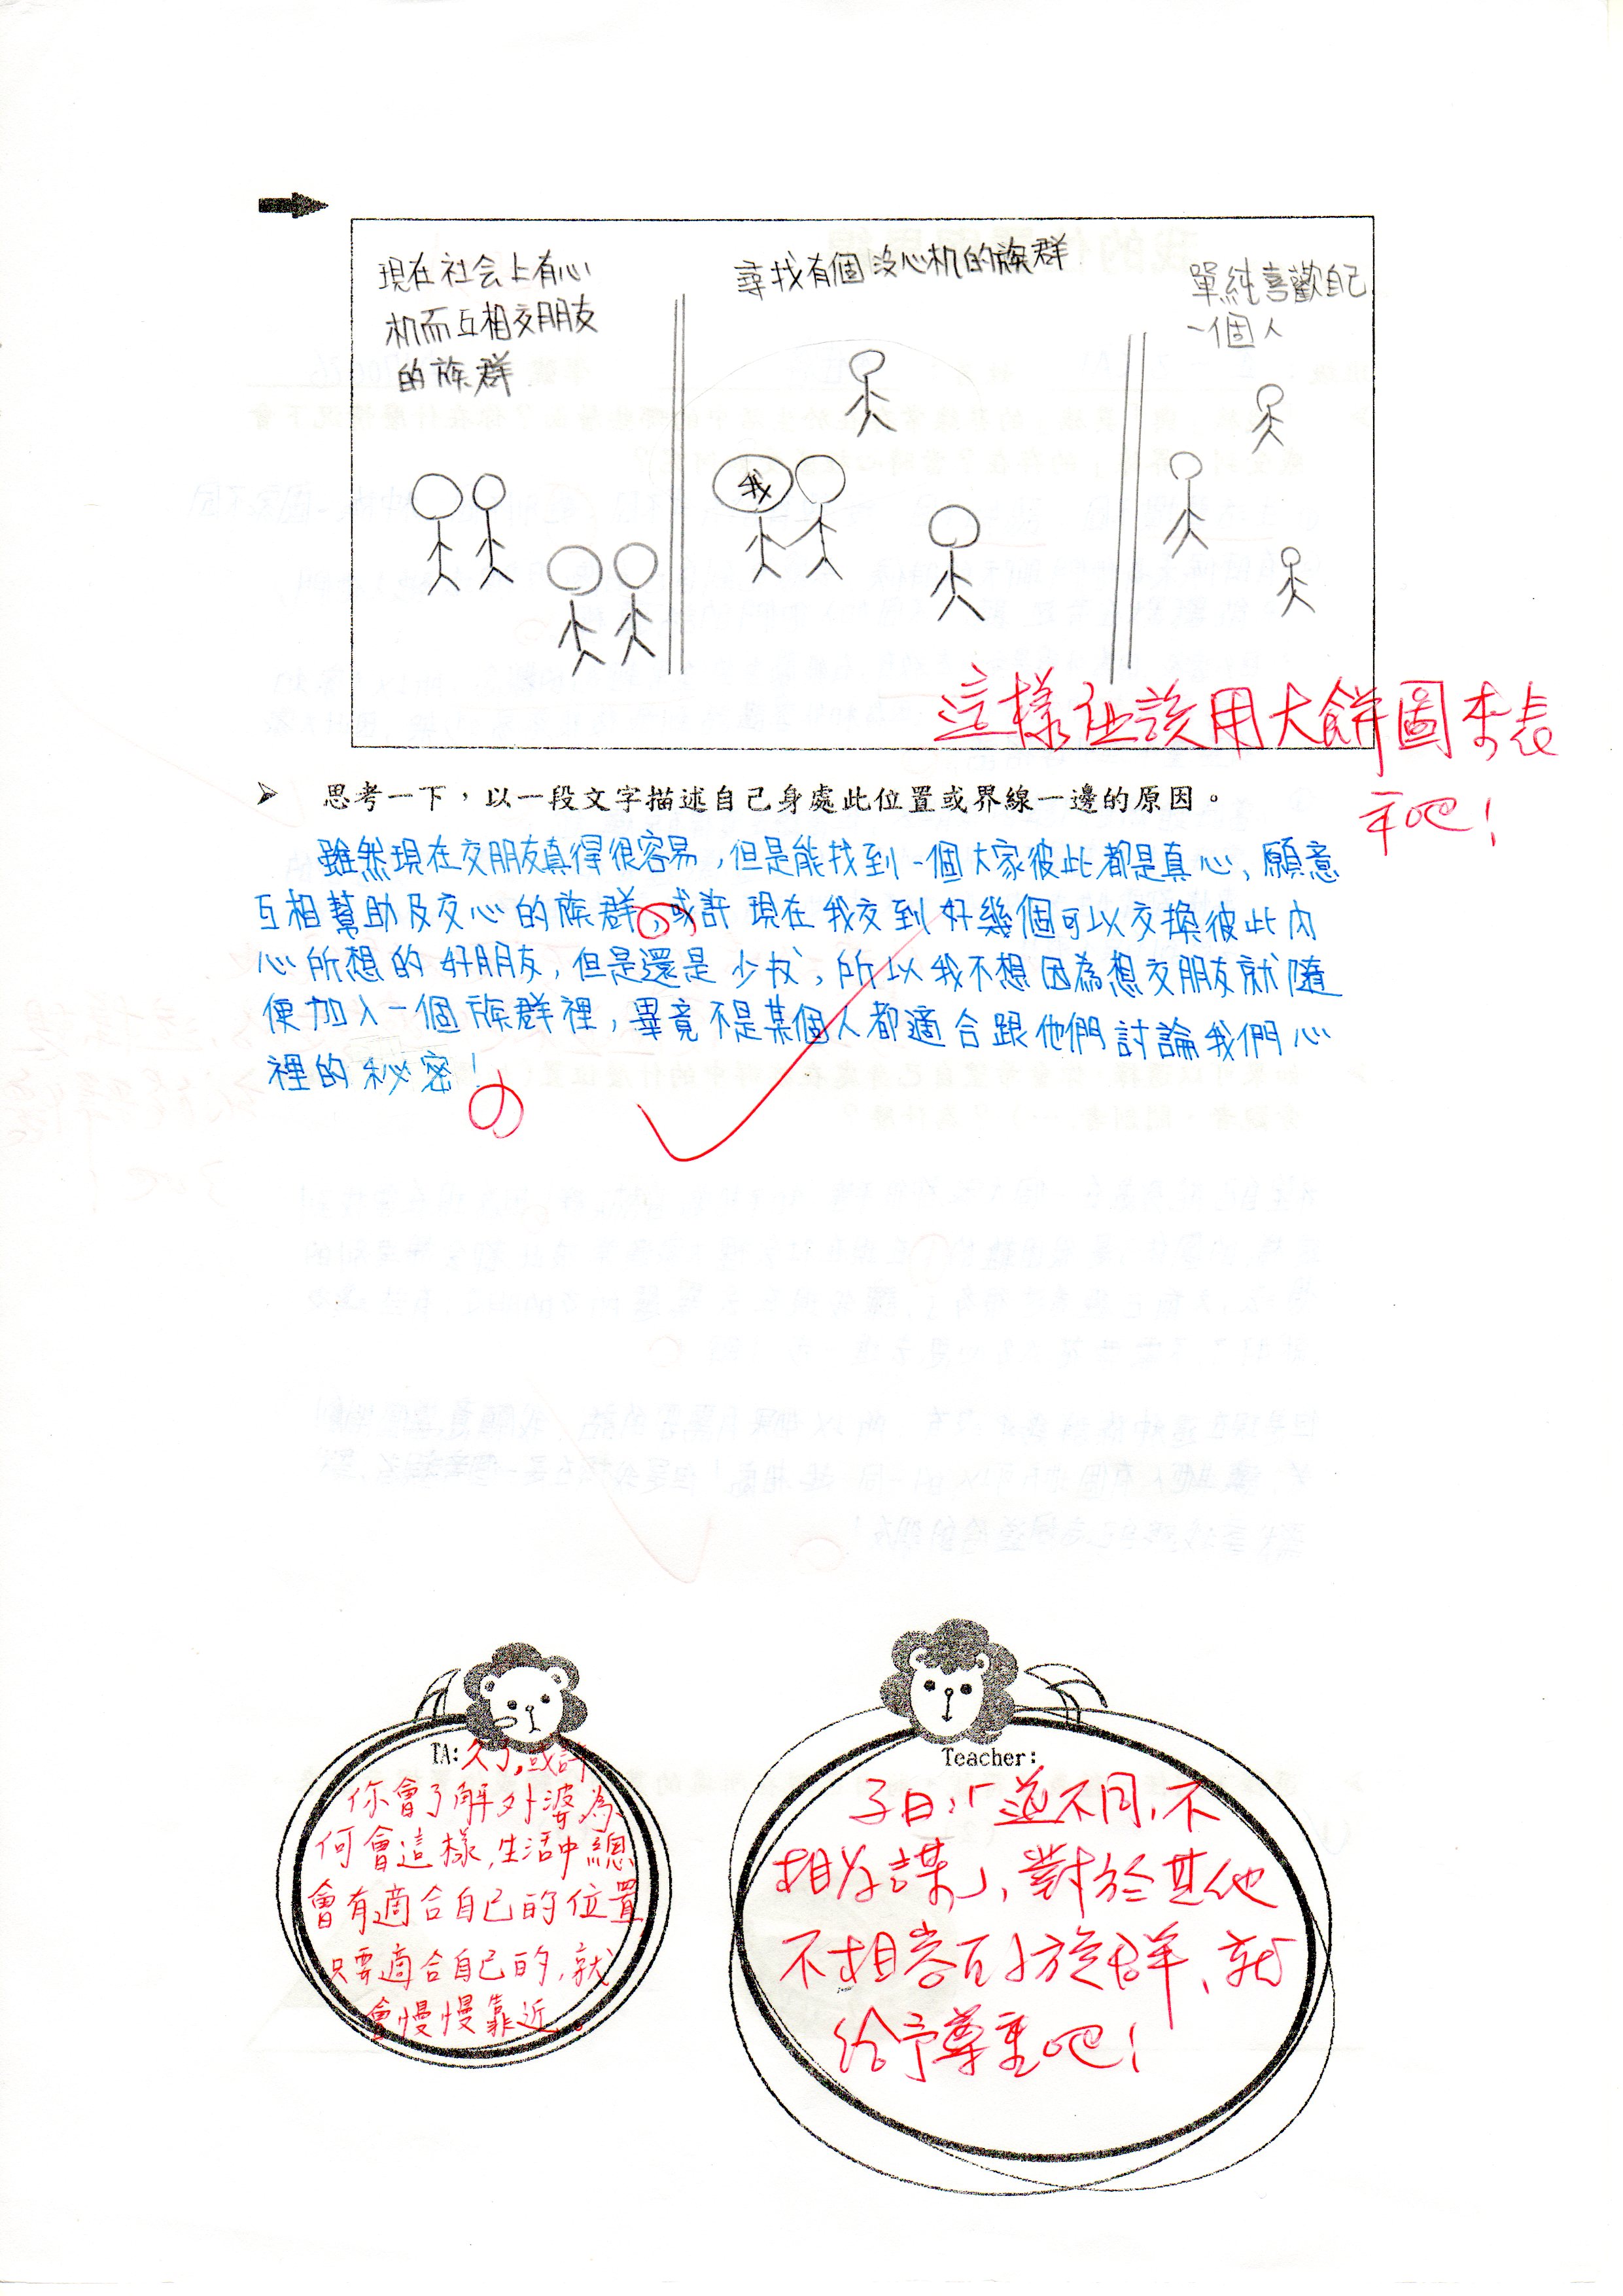 現在社会上有心
机而互相交朋友
的族群
尋找有個沒心机的族群
單純喜歡自己
一個人
我
這樣應該用大餅圖來表
示吧!
思考一下,以一段文字描述自己身處此位置或界線一邊的原因。
雖然現在交朋友真得很容易,但是能找到一個大家彼此都是真心、願意
互相幫助及交心的族群,或許現在我交到好幾個可以交換彼此內
心所想的好朋友,但是還是少數,所以我不想因為想交朋友就隨
便加入一個族群裡,畢竟不是某個人都適合跟他們討論我們心
裡的秘密!
TA:久了,或許
你會了解外婆為
何會這樣,生活中總
會有適合自己的位置
只要適合自己的,就
會慢慢靠近。
Teacher:
子曰:「道不同,不
相為謀」,對於其他
不相容的族群,就
給予尊重吧!